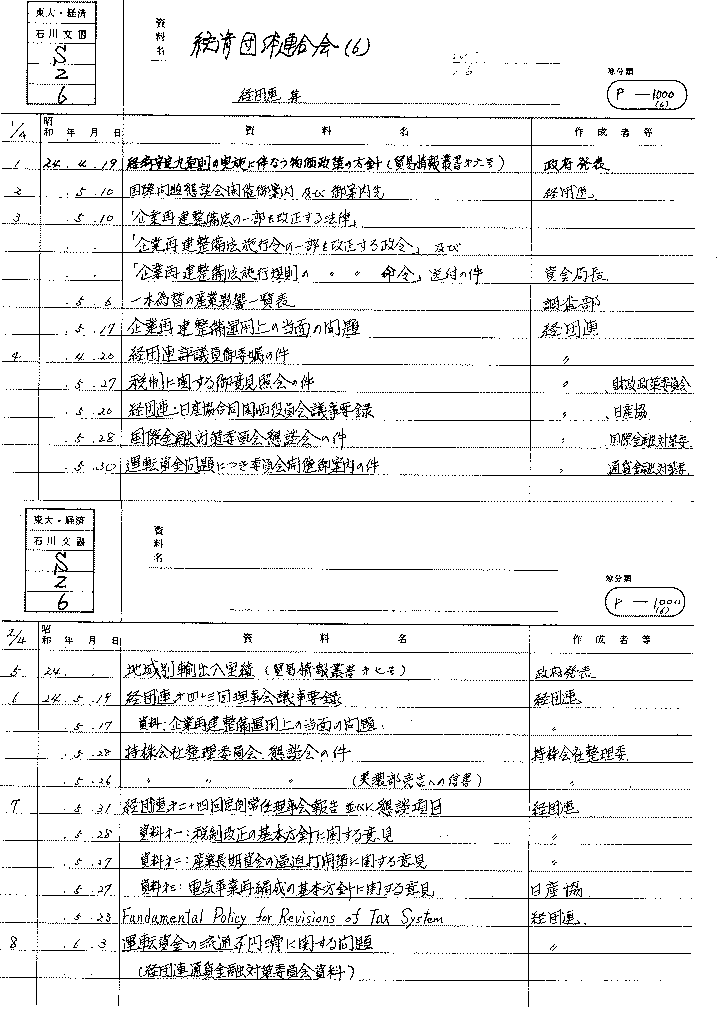 東大・経済
石川文圕
S
2
6
資料名
経済団体連合会(6)
経団連 算
総分類
P—1000
(6)
1/4 昭和 年 月 日 資 料 名 作 成 者 等
1 24. 4. 19 経済安定九原則の実施に伴なう物価政策の方針(貿易情報叢書オ七号) 政府発表
2 . 5. 10 国際問題懇談会開催御案内 及び 御案内先 経団連
3 . 5. 10 「企業再建整備法の一部を改正する法律」
. . 「企業再建整備法施行令の一部を改正する政令」 及び
. . 「企業再建整備法施行規則の 〃 〃 命令」送付の件 資会局長
. 5. 6 一本為替の産業影響一覧表 調査部
. 5. 17 企業再建整備運用上の当面の問題 経団連
4 . 4. 20 経団連評議員御委嘱の件 〃
. 5. 27 税制に関する御意見照会の件 〃 財政政策委員会
. 5. 20 経団連・日産協合同関西役員会議事要録 〃 日産協
. 5. 28 国際金融対策委員会懇談会の件 〃 国際金融対策委
. 5. 30 運転資金問題につき委員会開催御案内の件 〃 通貨金融対策委
東大・経済
石川文圕
S
2
6
資料名
総分類
P—1000
(6)
2/4 昭和 年 月 日 資 料 名 作 成 者 等
5 24. . 地域別輸出入実績(貿易情報叢書オ七号) 政府発表
6 24. 5. 19 経団連オ四十三回理事会議事要録 経団連
. 5. 17 資料:企業再建整備運用上の当面の問題. 〃
. 5. 28 持株会社整理委員会.懇談会の件 持株会社整理委
. 5. 26 〃 〃 〃 (美濃部亮吉への信書) 〃
7 . 5. 31 経団連オ二十四回定例常任理事会報告 並びに 懇談項目 経団連
. 5. 28 資料オ一:税制改正の基本方針に関する意見 〃
. 5. 27 資料オ二:産業長期資金の逼迫打開策に関する意見 〃
. 5. 27 資料オ三:電気事業再編成の基本方針に関する意見 日産協
. 5. 23 Fundamental Policy for Revisions of Tax System 経団連.
8 . 6. 3 運転資金の流通不円滑に関する問題 〃
(経団連通貨金融対策委員会資料)